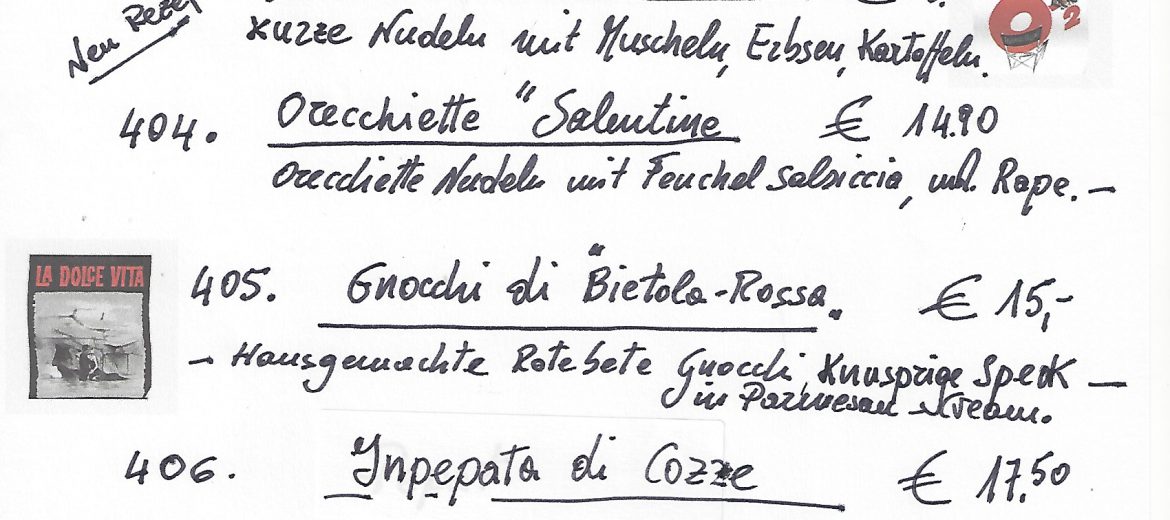 Neu Rezep
kurze Nudeln mit Muscheln, Erbsen, Kartoffeln.
2
404. Orecchiette "Salentine € 14.90
Orecchiette Nudeln mit Fenchel Salsiccia, und. Rape. –
LA DOLCE VITA
405. Gnocchi di "Bietola-Rossa„ € 15,-
– Hausgemachte Rotebete Gnocchi, Knusprige Speck –
in Parmesan - Kream.
406. Inpepata di Cozze € 17.50